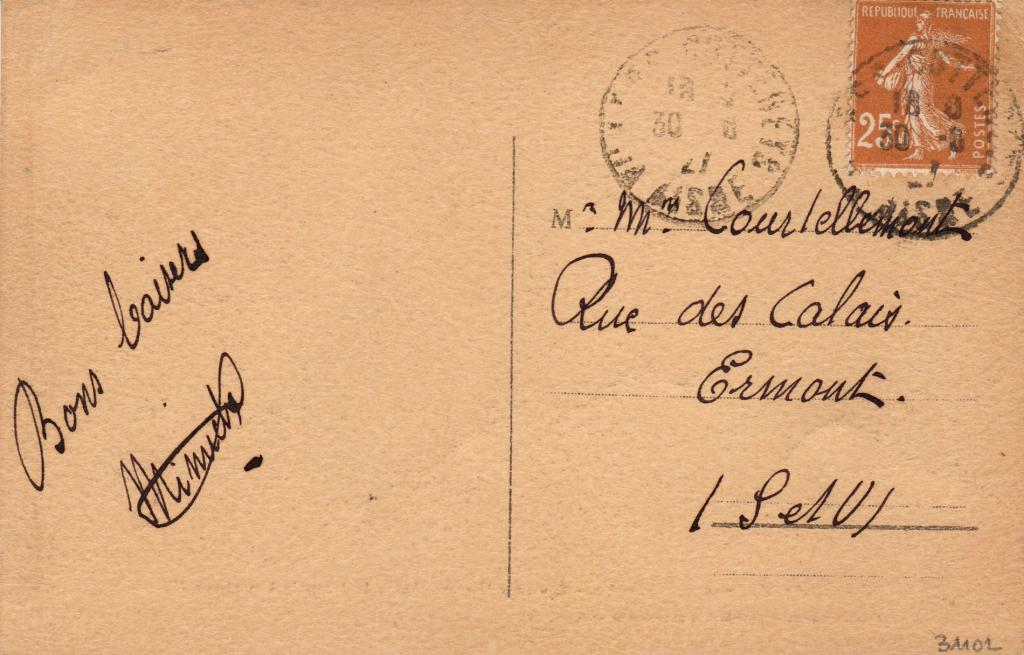 RÉPUBLIQUE FRANÇAISE
25c
POSTES
VILLERS-COTTERETS
18
30 -8
27
AISNE
18
30 -8
27
AISNE
Mr Mme Courtellemont
Rue des Calais.
Ermont.
(S et O)
Bons baisers
31102